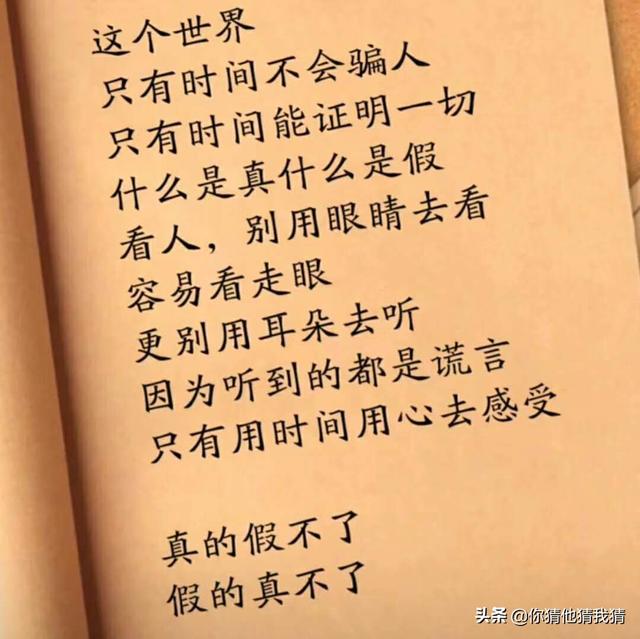 这个世界
只有时间不会骗人
只有时间能证明一切
什么是真什么是假
看人，别用眼睛去看
容易看走眼
更别用耳朵去听
因为听到的都是谎言
只有用时间用心去感受
真的假不了
假的真不了
头条 @你猜他猜我猜